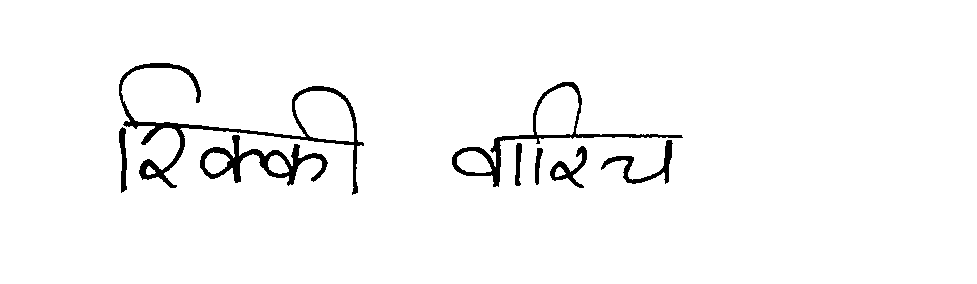 रिक्की वारिच